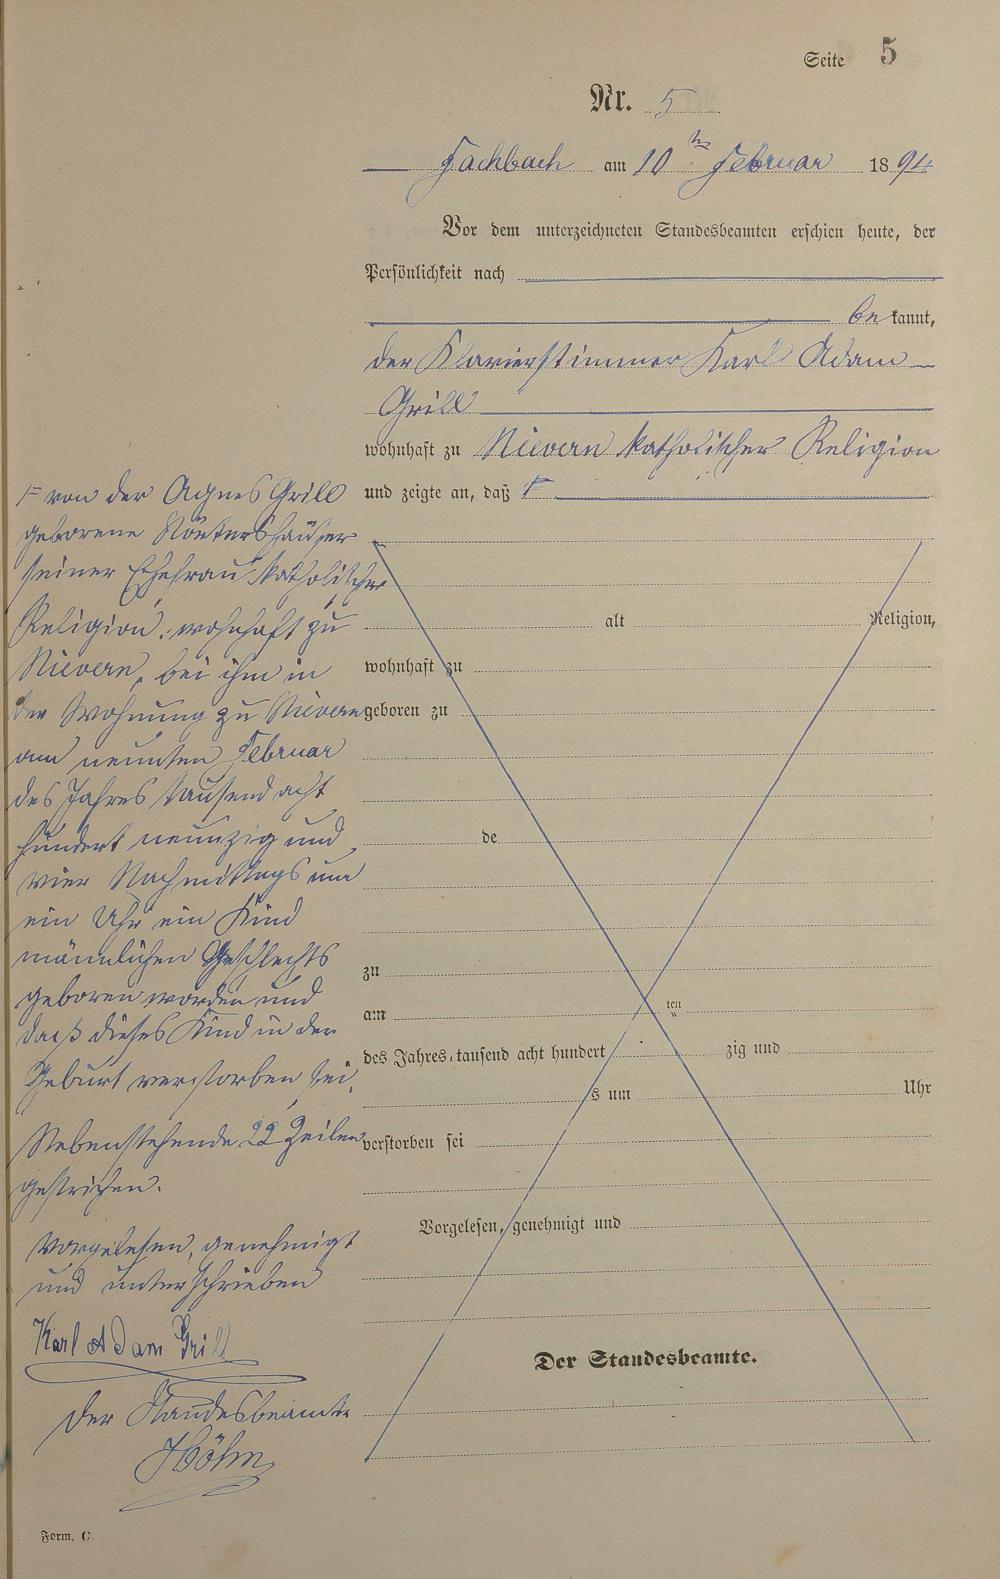 Seite 5
Nr. 5
Fachbach am 10ten Februar 1894
Vor dem unterzeichneten Standesbeamten erschien heute, der
Persönlichkeit nach
be kannt,
der Klavierstimmer Karl Adam
Grill
wohnhaft zu Nievern katholischer Religion
und zeigte an, daß F
F von der Agnes Grill
geborene Nörtershäuser
seiner Ehefrau katholischer
Religion, wohnhaft zu
Nievern, bei ihm in
der Wohnung zu Nievern
am neunten Februar
des Jahres tausend acht
hundert neunzig und
vier Nachmittags um
ein Uhr ein Kind
männlichen Geschlechts
geboren worden und
daß dieses Kind in der
Geburt verstorben sei.
Nebenstehende 22 Zeilen
gestrichen.
Vorgelesen, genehmigt
und unterschrieben
Karl Adam Grill
Der Standesbeamte
Höhn
alt Religion,
wohnhaft zu
geboren zu
de
zu
am ten
des Jahres tausend acht hundert zig und
s um Uhr
verstorben sei
Vorgelesen, genehmigt und
Der Standesbeamte.
Form. C.